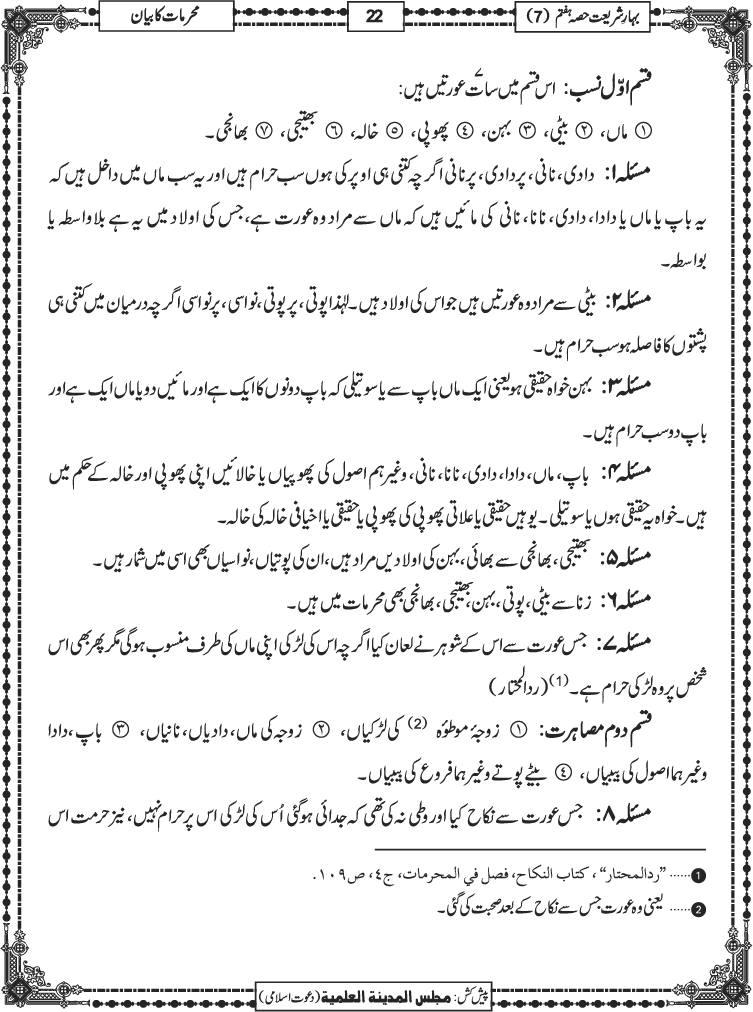 بہارِ شریعت حصہ ہفتم (7)
22
محرمات کا بیان
قسم اوّل نسب: اس قسم میں سات۷ عورتیں ہیں:
① ماں، ② بیٹی، ③ بہن، ④ پھوپی، ⑤ خالہ، ⑥ بھتیجی، ⑦ بھانجی۔
مسئلہ۱: دادی، نانی، پردادی، پرنانی اگرچہ کتنی ہی اوپر کی ہوں سب حرام ہیں اور یہ سب ماں میں داخل ہیں کہ
یہ باپ یا ماں یا دادا، دادی، نانا، نانی کی مائیں ہیں کہ ماں سے مراد وہ عورت ہے، جس کی اولاد میں یہ ہے بلاواسطہ یا
بواسطہ۔
مسئلہ۲: بیٹی سے مراد وہ عورتیں ہیں جو اس کی اولاد ہیں۔ لہٰذا پوتی، پرپوتی، نواسی، پرنواسی اگرچہ درمیان میں کتنی ہی
پشتوں کا فاصلہ ہو سب حرام ہیں۔
مسئلہ۳: بہن خواہ حقیقی ہو یعنی ایک ماں باپ سے یا سوتیلی کہ باپ دونوں کا ایک ہے اور مائیں دو یا ماں ایک ہے اور
باپ دو سب حرام ہیں۔
مسئلہ۴: باپ، ماں، دادا، دادی، نانا، نانی، وغیرہم اصول کی پھوپیاں یا خالائیں اپنی پھوپی اور خالہ کے حکم میں
ہیں۔ خواہ یہ حقیقی ہوں یا سوتیلی۔ یوہیں حقیقی یا علاتی پھوپی کی پھوپی یا حقیقی یا اخیافی خالہ کی خالہ۔
مسئلہ۵: بھتیجی، بھانجی سے بھائی، بہن کی اولادیں مراد ہیں، ان کی پوتیاں، نواسیاں بھی اسی میں شمار ہیں۔
مسئلہ۶: زنا سے بیٹی، پوتی، بہن، بھتیجی، بھانجی بھی محرمات میں ہیں۔
مسئلہ۷: جس عورت سے اس کے شوہر نے لعان کیا اگرچہ اس کی لڑکی اپنی ماں کی طرف منسوب ہوگی مگر پھر بھی اس
شخص پر وہ لڑکی حرام ہے۔(1) (ردالمحتار)
قسم دوم مصاہرت: ① زوجۂ موطؤہ (2) کی لڑکیاں، ② زوجہ کی ماں، دادیاں، نانیاں، ③ باپ، دادا
وغیرہما اصول کی بیبیاں، ④ بیٹے پوتے وغیرہما فروع کی بیبیاں۔
مسئلہ۸: جس عورت سے نکاح کیا اور وطی نہ کی تھی کہ جدائی ہوگئی اُس کی لڑکی اس پر حرام نہیں، نیز حرمت اس
❶...... ”ردالمحتار“، کتاب النکاح، فصل في المحرمات، ج٤، ص١٠٩.
❷...... یعنی وہ عورت جس سے نکاح کے بعد صحبت کی گئی۔
پیش کش: مجلس المدینۃ العلمیۃ (دعوت اسلامی)